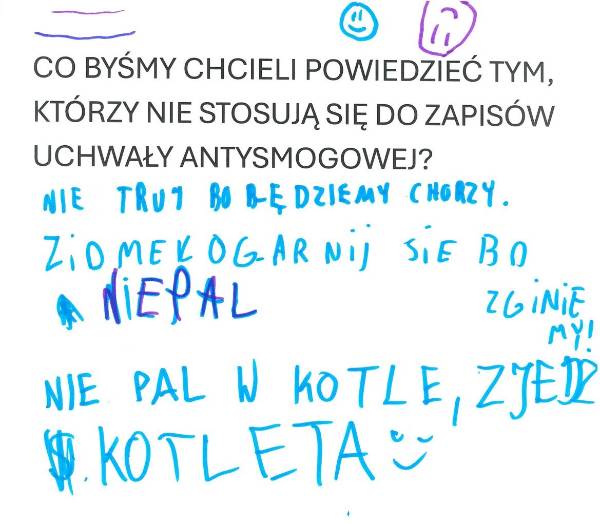 CO BYŚMY CHCIELI POWIEDZIEĆ TYM,
KTÓRZY NIE STOSUJĄ SIĘ DO ZAPISÓW
UCHWAŁY ANTYSMOGOWEJ?
NIE TRUJ BO BĘDZIEMY CHORZY.
ZIOMEK OGARNIJ SIE BO
ZGINIE
MY!
NIEPAL
NIE PAL W KOTLE, ZJEDZ
KOTLETA